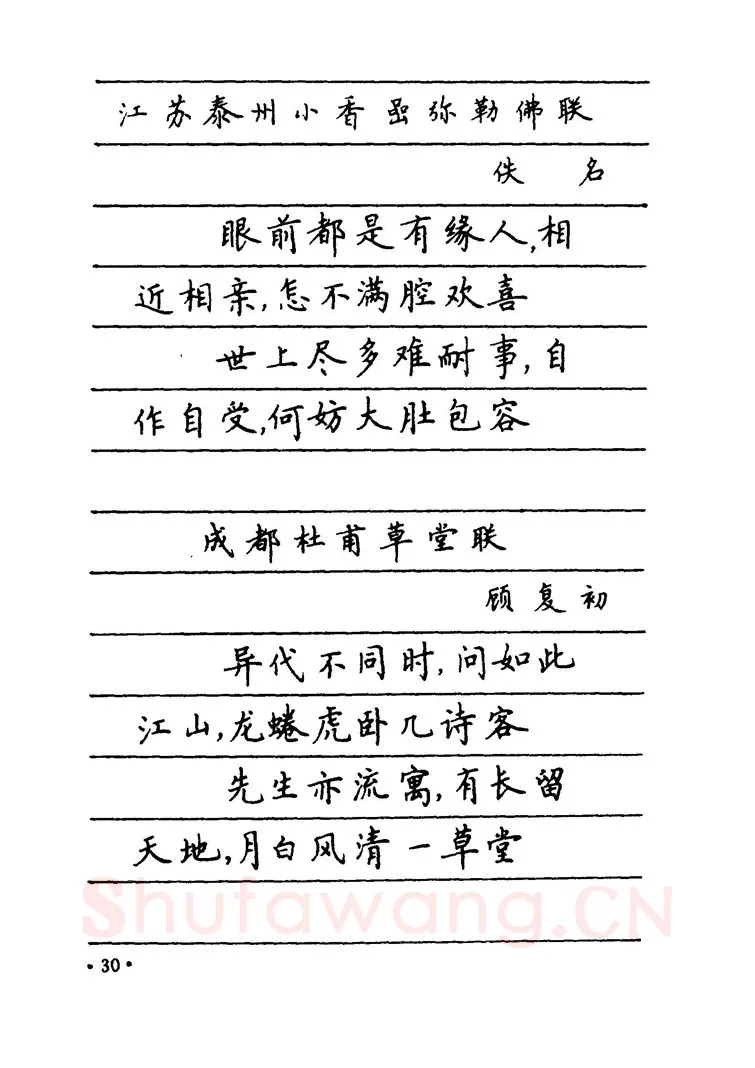 江苏泰州小香嵒弥勒佛联
佚 名
眼前都是有缘人,相
近相亲,怎不满腔欢喜
世上尽多难耐事,自
作自受,何妨大肚包容
成都杜甫草堂联
顾复初
异代不同时,问如此
江山,龙蜷虎卧几诗客
先生亦流寓,有长留
天地,月白风清一草堂
Shufawang.CN
·30·